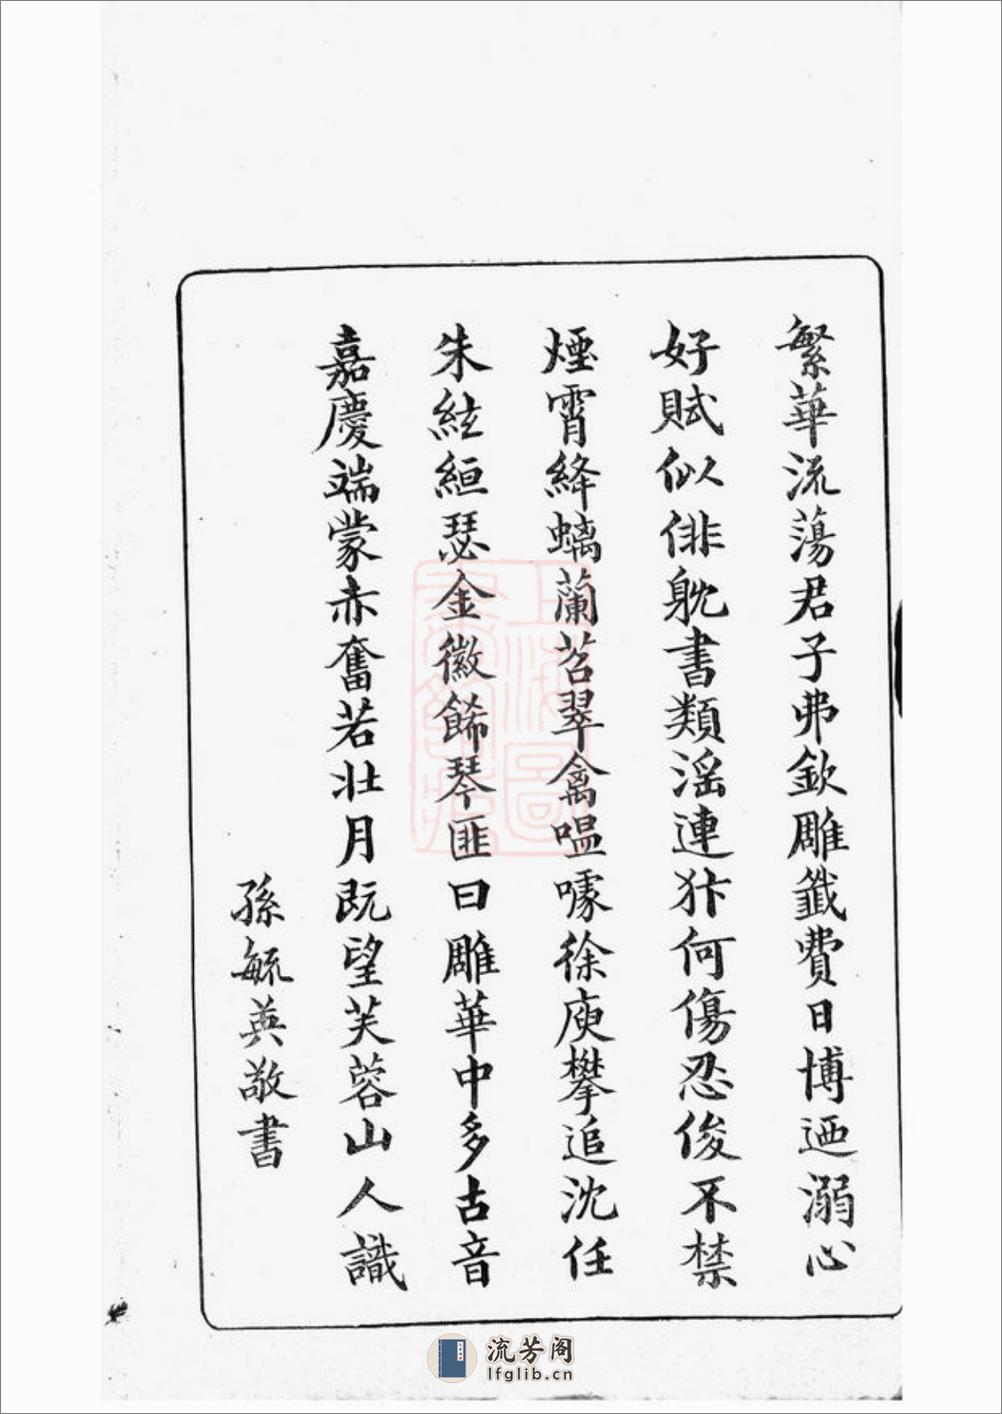 繁華流蕩君子弗欽雕籤費日博迺溺心
好賦似俳躭書類滛連犿何傷忍俊不禁
煙霄絳螭蘭苕翠禽嗢噱徐庾攀追沈任
朱絃絙瑟金徽餙琴匪曰雕華中多古音
嘉慶端蒙赤奮若壯月既望芙蓉山人識
孫毓英敬書
上海圖
流芳阁
lfglib.cn